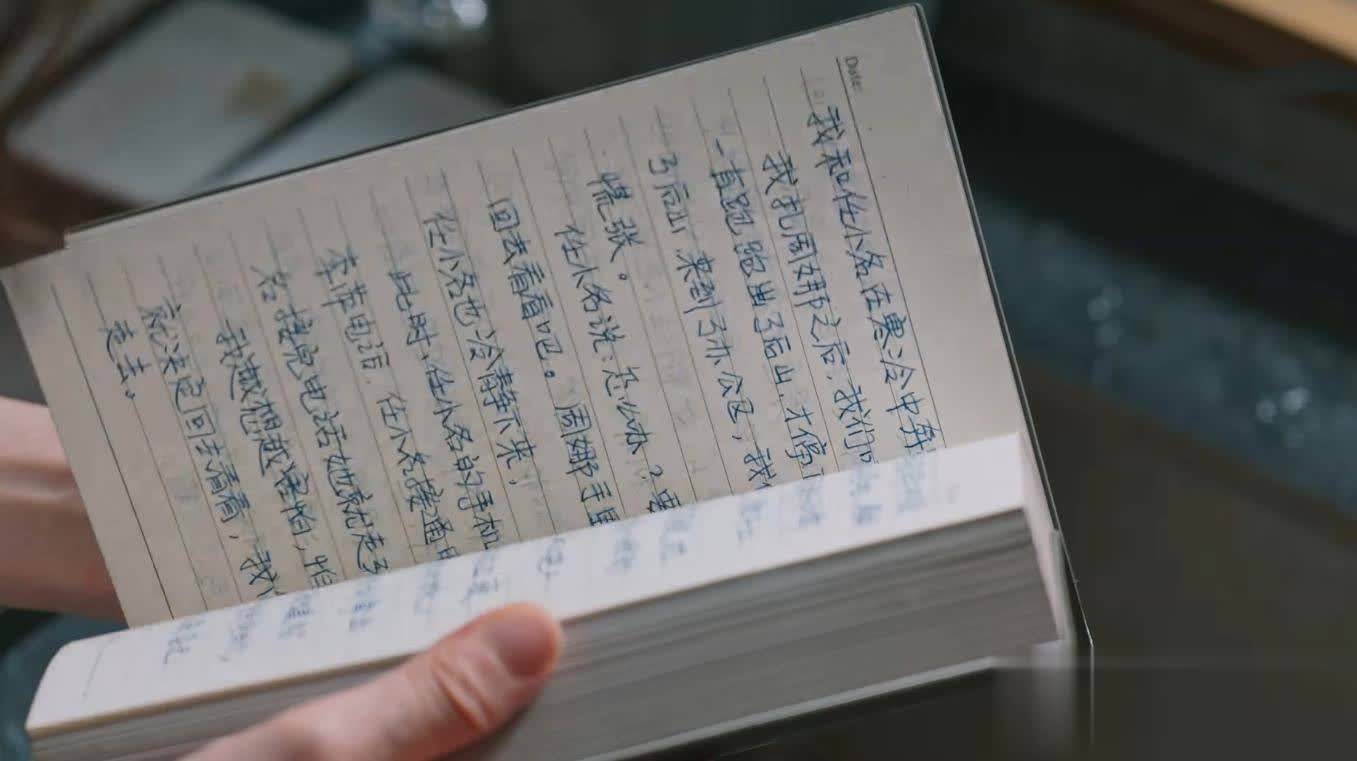 Date:
我和任小名在寒冷中奔
我扎周娜之后,我们
一直跑跑出了后山,才停
了后山来到了办公区,我
慌张。
任小名说:怎么办?要
回去看看吧。周娜手里
任小名也冷静下来,
此时,任小名的手机
本市电话,任小名接通
名接完电话她就走了
我越想越害怕,怕
就决定回去看看,我
走去。